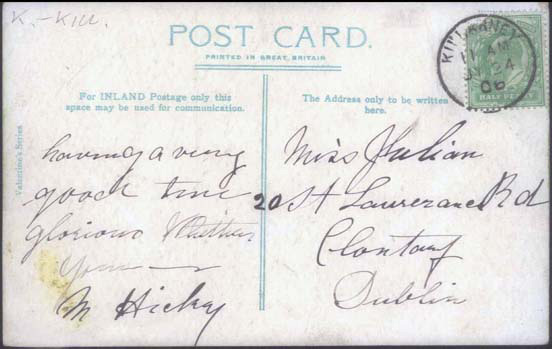 K.-Kill.
POST CARD.
PRINTED IN GREAT BRITAIN
For INLAND Postage only this
space may be used for communication.
The Address only to be written
here.
Valentine's Series
KILLARNEY
11 AM
24
06
HALF PENNY
having a very
good time
glorious Weather
Yours
M Hickey
Miss Julian
20 St Lawerance Rd
Clontarf
Dublin